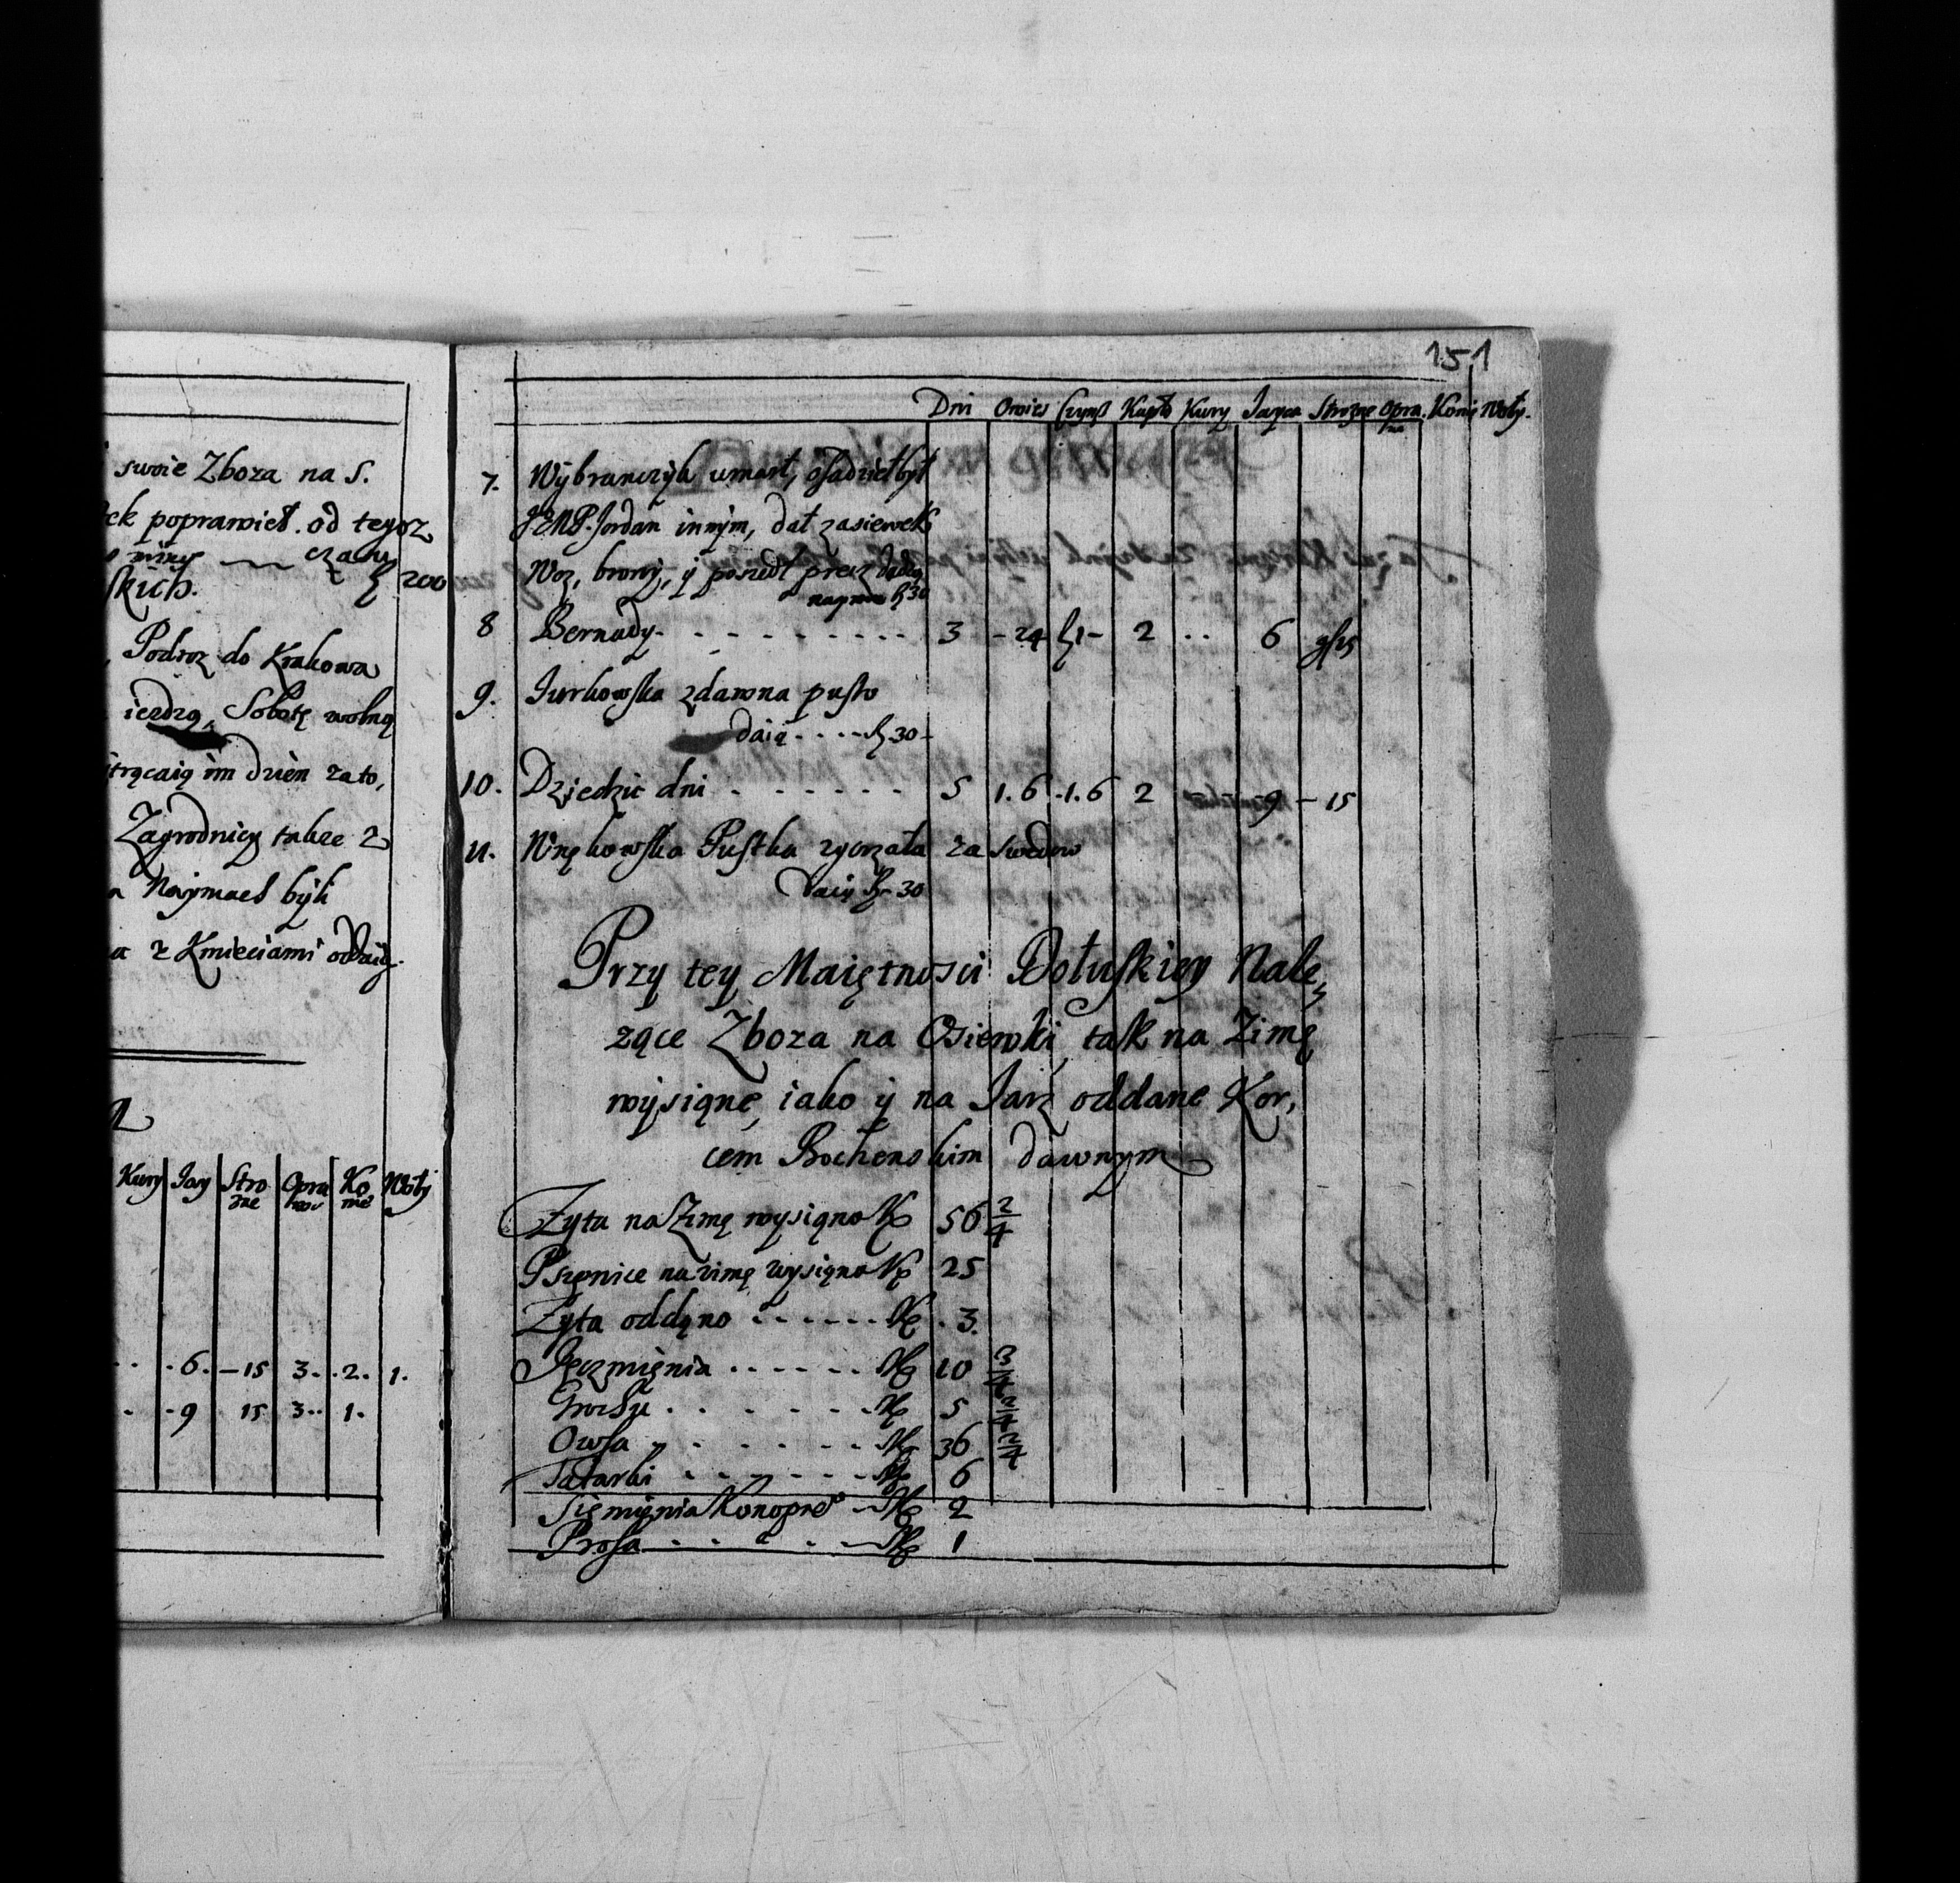 swoie Zboza na S.
poprawieł. od tegoz
czasu
skich. 200
Podroz do Krakowa
iezdzą, Sobotę wolną
trącaią im dzien za to,
Zagrodnicy takze z
Naymael byli
a z Kmieciami oddaią.
Kury Jay Stro zne Opra Ko nie Woły
. . . 6. – 15 3. . 2. 1.
. . 9 15 3 . . 1.
151
Dni Owies Czynß Kapło Kury Jayca Strozne Opra. Konie Woły.
7. Wybranczyk umarł, osadzieł był
JEMP. Jordan innym, dał zasiewek
Woz, brony, y poszedł precz
30
8 Bernady. . . . . . . . . . 3 – 24 1 – 2 . . 6 15
9. Jurkowska zdawna pusto
daią . . . . 30 –
10. Dziedzic dni . . . . . . . 5 1. 6 . 1. 6 2 9 – 15
11. Wnękowska Pustka zgorzała za swedow
Daią 30
Przy tey Maiętnosci Dołuskiey Nale,
zące Zboza na Osiewki, tak na Zimę
wysiąne, iako y na Jarz oddane Kor,
cem Bochenskim dawnym
Zyta na Zimę wysiąno K 56 2/4
Pszenice na zimę wysiąno K 25
Zyta oddąno . . . . . . K . 3.
Jęczmięnia . . . . . . K 10 3/4
Grochu . . . . . . . K 5 2/4
Owsa . . . . . . . K 36 2/4
Tatarki . . . . . . K 6
Siemięnia Konopne° – K 2
Prosa . . . . . – K 1